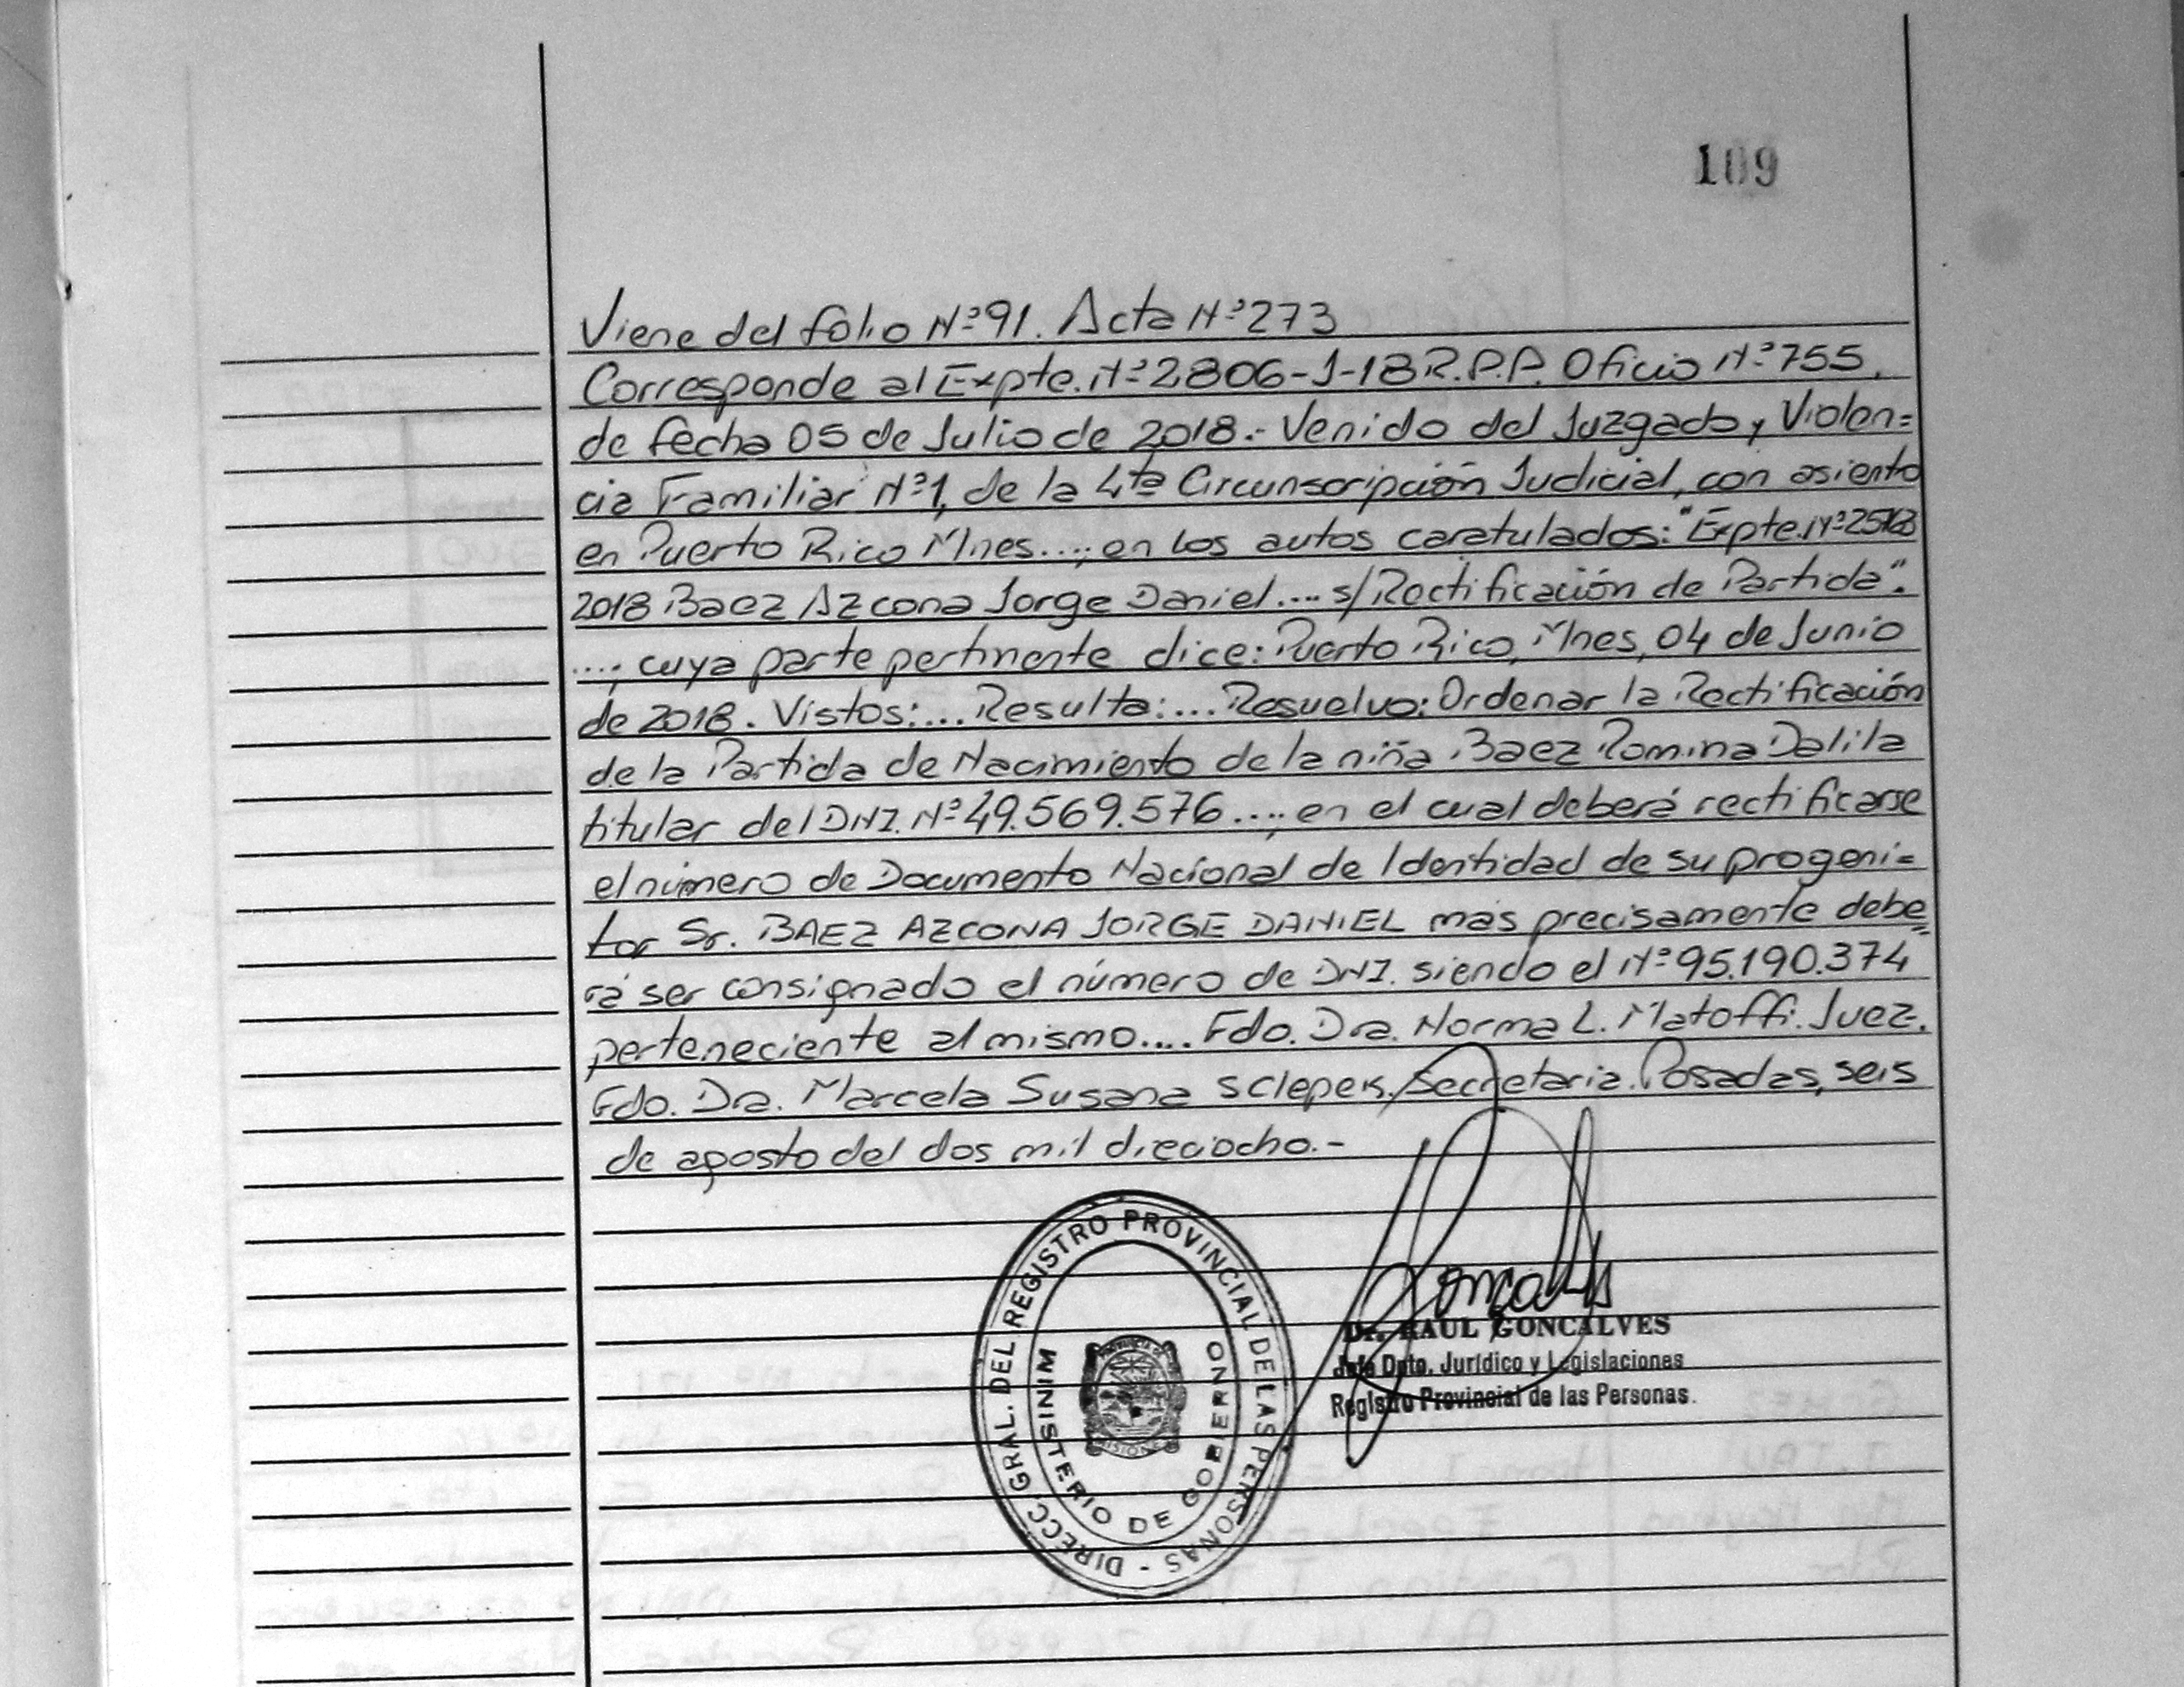 109
Viene del folio Nº91. Acta Nº273
Corresponde al Expte. Nº2806-J-18 R.P.P. Oficio Nº755,
de fecha 05 de Julio de 2018.- Venido del Juzgado y Violen=
cia Familiar Nº1, de la 4ta Circunscripción Judicial, con asiento
en Puerto Rico Mnes....; en los autos caratulados: "Expte. Nº
2018 Baez Azcona Jorge Daniel.... s/Rectificación de Partida".
....; cuya parte pertinente dice: Puerto Rico, Mnes, 04 de Junio
de 2018. Vistos:... Resulta:... Resuelvo: Ordenar la Rectificación
de la Partida de Nacimiento de la niña Baez Romina Dalila
titular del DNI. Nº49.569.576....; en el cual deberá rectificarse
el número de Documento Nacional de Identidad de su progeni=
tor Sr. BAEZ AZCONA JORGE DANIEL más precisamente debe=
rá ser consignado el número de DNI. siendo el Nº95.190.374
perteneciente al mismo.... Fdo. Dra. Norma L. Matoffi. Juez.
Fdo. Dra. Marcela Susana Sclepek. Secretaria. Posadas, seis
de agosto del dos mil dieciocho.-
DIRECC. GRAL. DEL REGISTRO PROVINCIAL DE LAS PERSONAS -
MINISTERIO DE GOBIERNO
MISIONES
Dr. RAUL GONCALVES
Jefe Dpto. Jurídico y Legislaciones
Registro Provincial de las Personas.